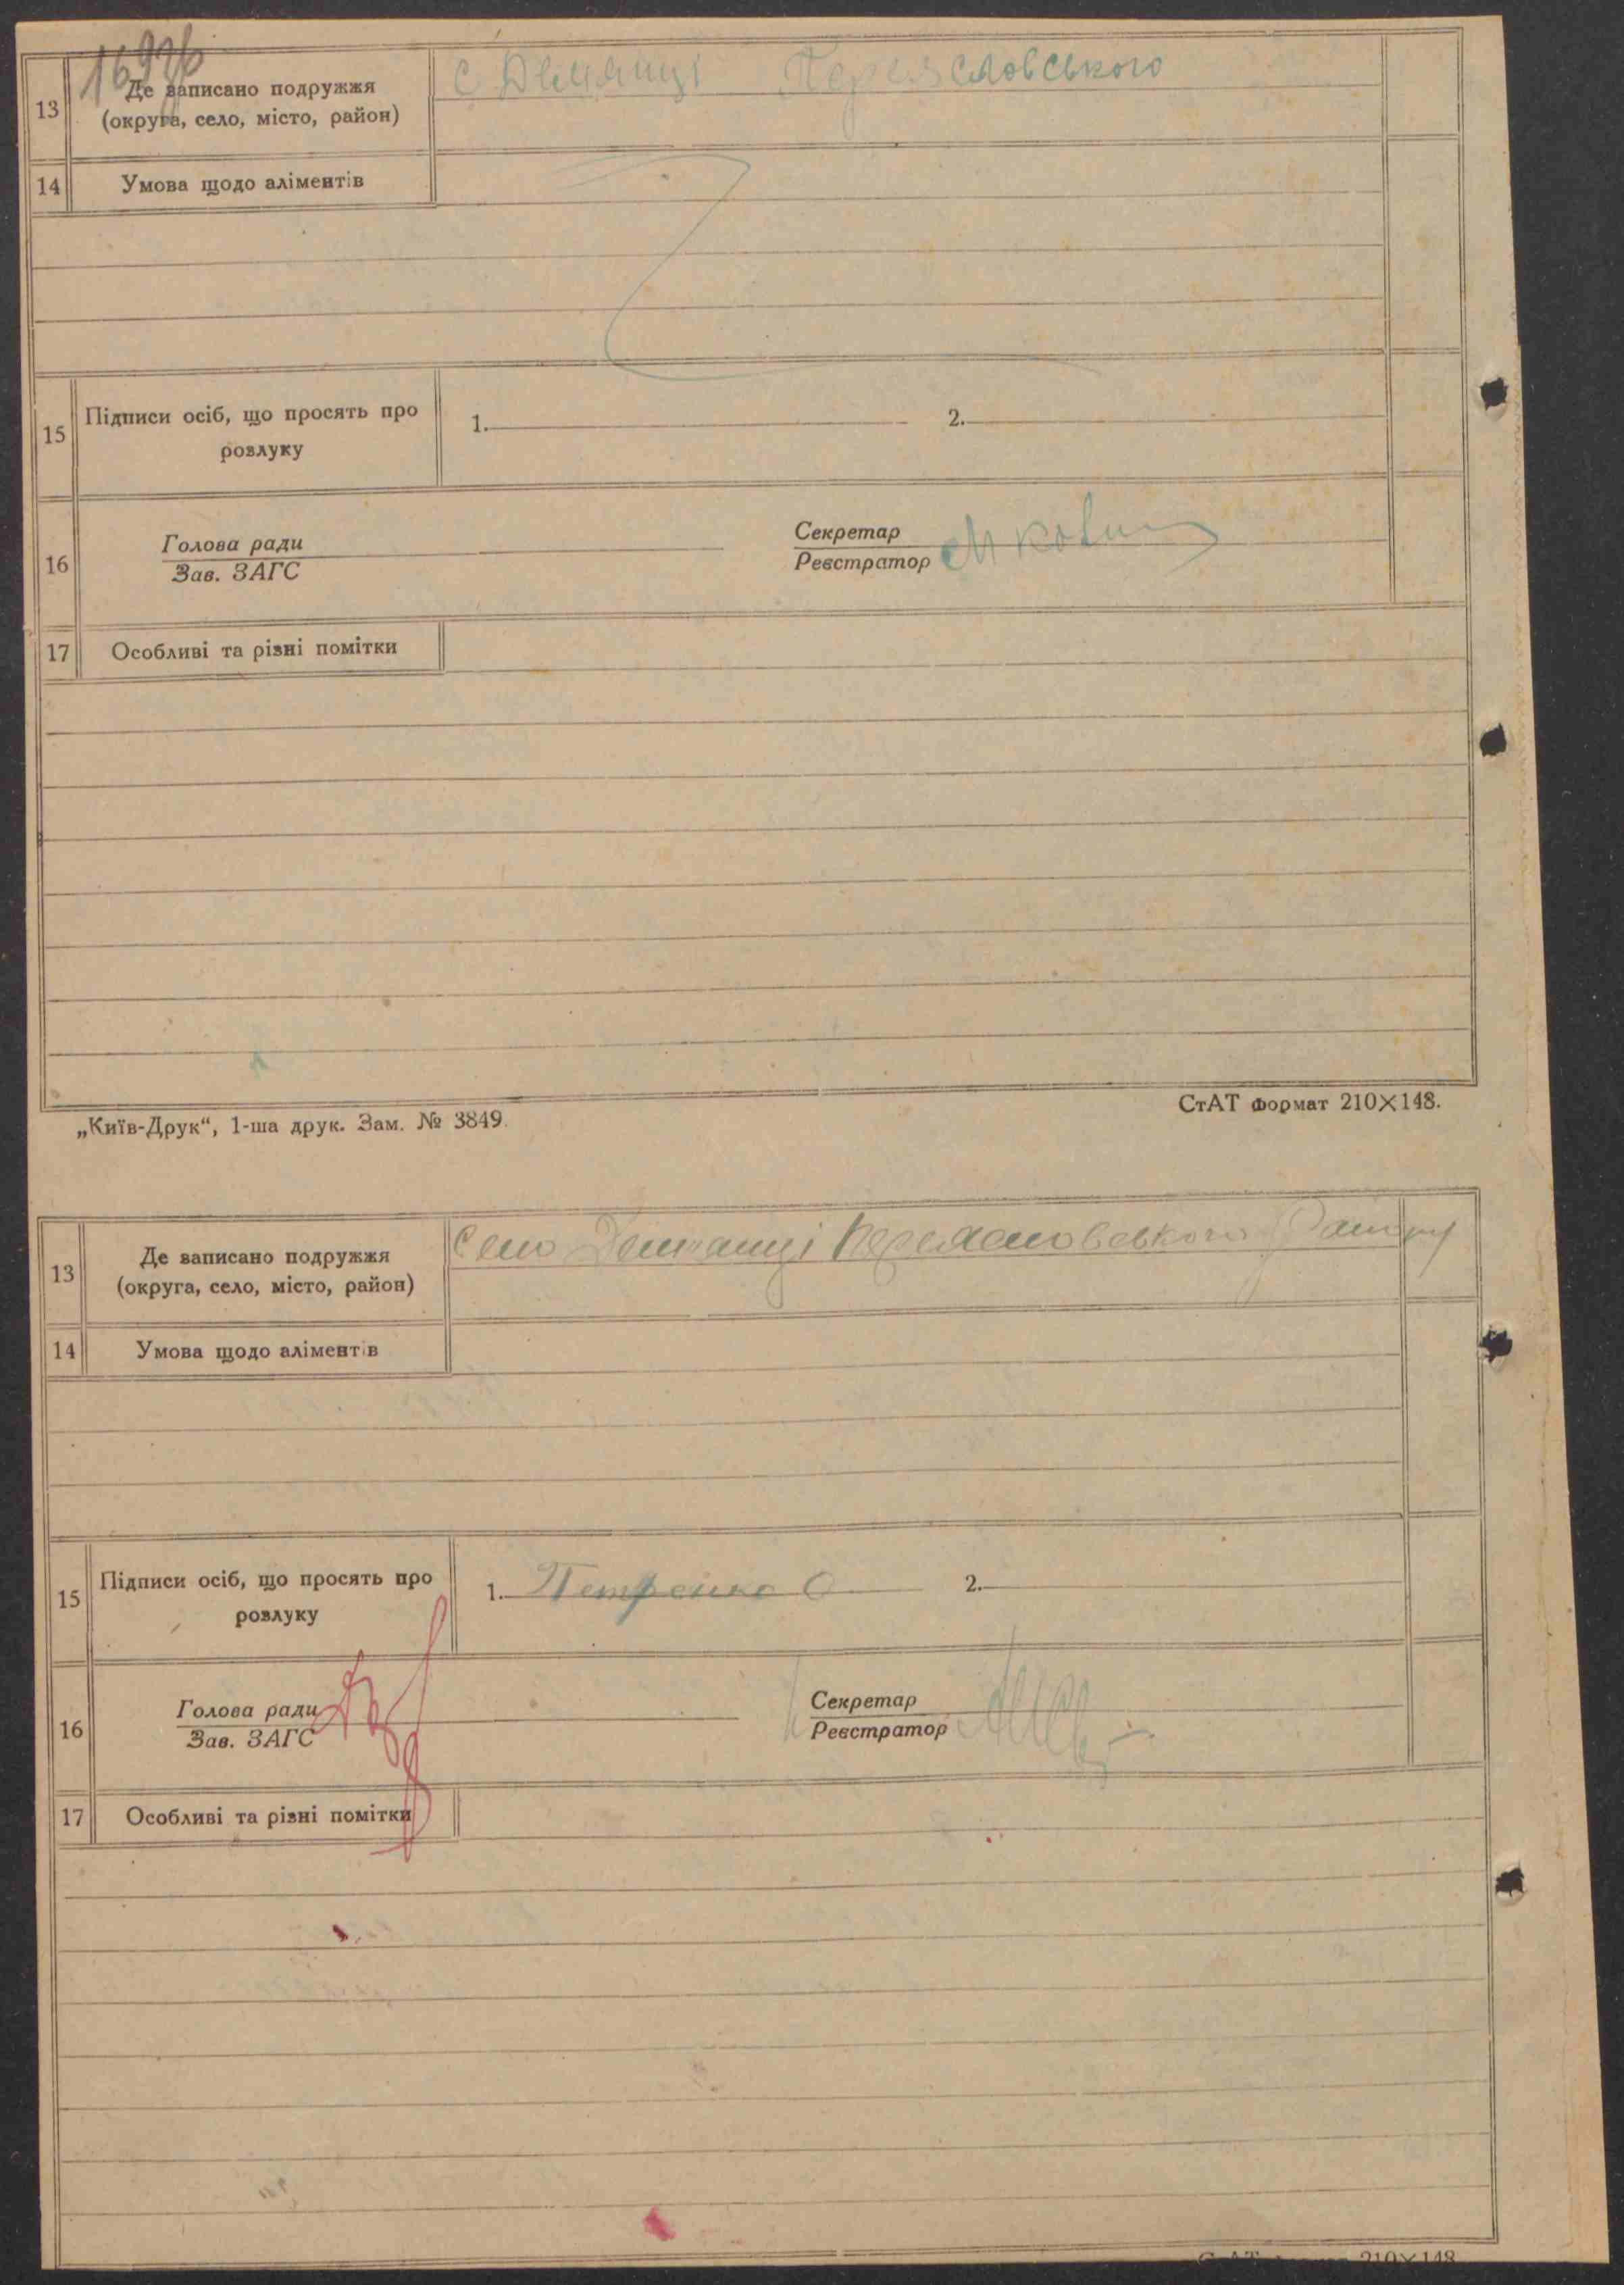 13
Де записано подружжя
(округа, село, місто, район)
с Демянці Переясловського
14
Умова щодо аліментів
15
Підписи осіб, що просять про
розлуку
1.
2.
16
Голова ради
Зав. ЗАГС
Секретар
Реєстратор
17
Особливі та різні помітки
„Київ-Друк“, 1-ша друк. Зам. № 3849.
СтАТ формат 210×148.
13
Де записано подружжя
(округа, село, місто, район)
Село Демянці Переясловського Району
14
Умова щодо аліментів
15
Підписи осіб, що просять про
розлуку
1. Петренко О
2.
16
Голова ради
Зав. ЗАГС
Секретар
Реєстратор
17
Особливі та різні помітки
210×148